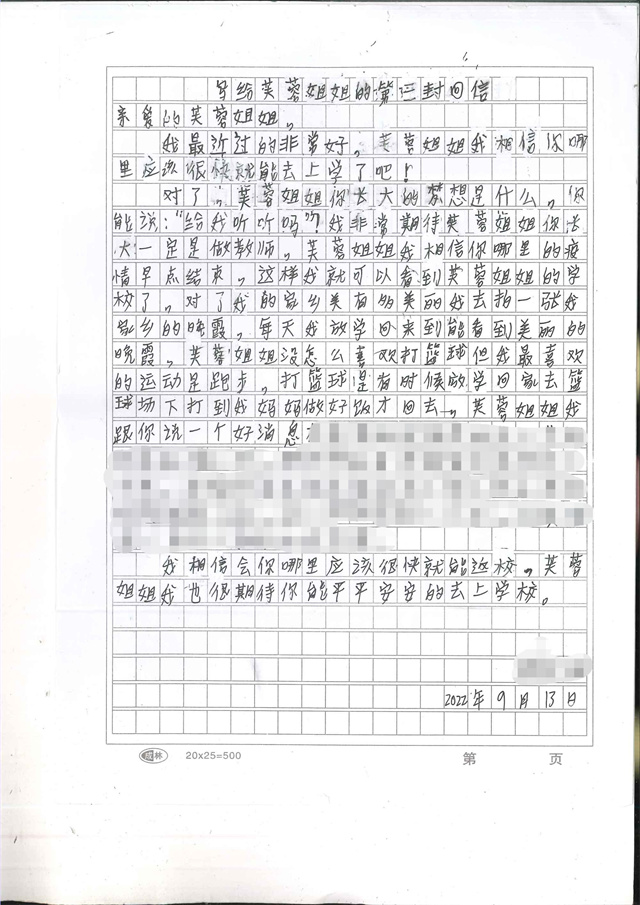 写给芙蓉姐姐的第三封回信
亲爱的芙蓉姐姐。
我最近过的非常好。芙蓉姐姐我相信你哪
里应该很快就能去上学了吧！
对了。芙蓉姐姐你长大的梦想是什么。你
能说："给我听听吗"？我非常期待芙蓉姐姐你长
大一定是做教师。芙蓉姐姐我相信你哪里的疫
情早点结束。这样我就可以看到芙蓉姐姐的学
校了。对了我的家乡美有多美丽我去拍一张我
家乡的晚霞。每天我放学回来到能看到美丽的
晚霞。芙蓉姐姐没怎么喜欢打篮球但我最喜欢
的运动是跑步。打篮球是有时候放学回家去篮
球场下打到我妈妈做好饭才回去。芙蓉姐姐我
跟你说一个好消息
我相信会你哪里应该很快就能返校。芙蓉
姐姐我也很期待你能平平安安的去上学校。
2022年9月13日
成林 20x25=500 第 页